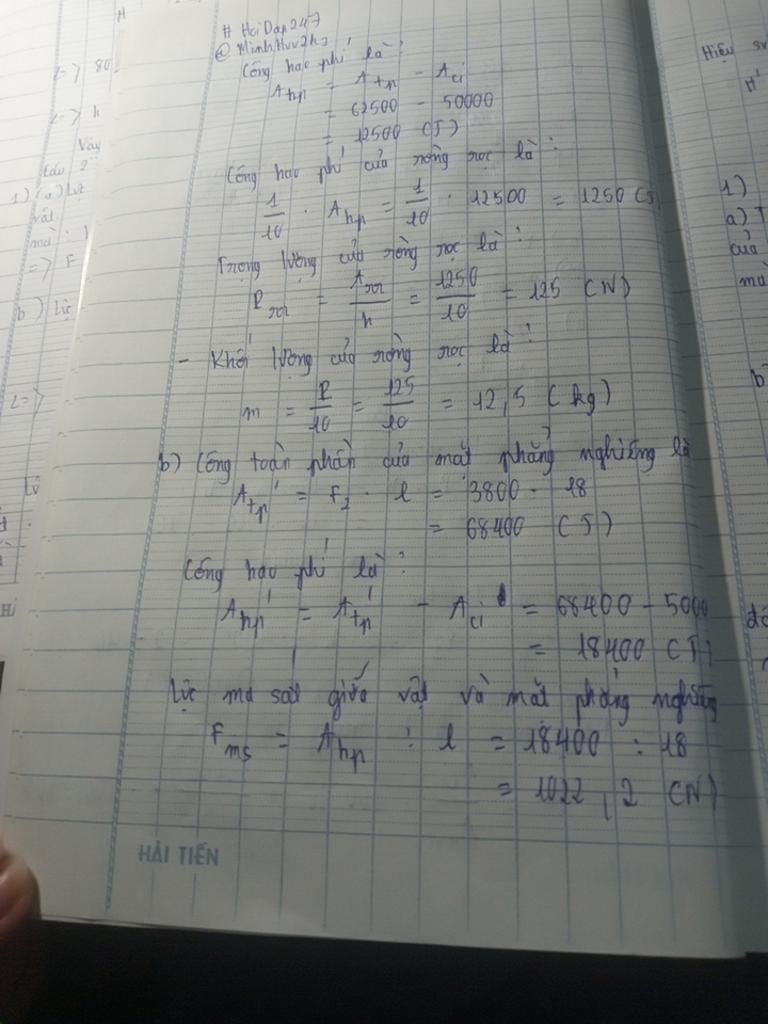 # HoiDap247
@MinhHuu2k3
Công hao phí là :
A hp = A tp - A ci
= 62500 - 50000
= 12500 (J)
Công hao phí của ròng rọc là :
1/10 . A hp = 1/10 . 12500 = 1250 (J)
Trọng lượng của ròng rọc là :
P rôr = A rôr / h = 1250/10 = 125 (N)
- Khối lượng của ròng rọc là :
m = P/10 = 125/10 = 12,5 (kg)
b) Công toàn phần của mặt phẳng nghiêng là
A tp' = F2 . l = 3800 . 18
= 68400 (J)
Công hao phí là :
A hp' = A tp' - A ci = 68400 - 5000
= 18400 (J)
Lực ma sát giữa vật và mặt phẳng nghiêng
F ms = A hp' : l = 18400 : 18
= 1022,2 (N)
HẢI TIẾN
=> 80
=> h
Vậy
Câu 2
1) (a) Lực
vật
mà :
=> F
b) Lực
=>
Hiệu su
H
1)
a) T
của
mà
b)